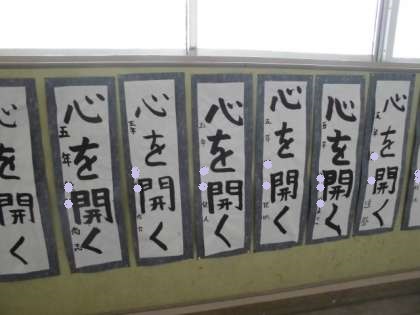 心を開く
心を開く
五年
心を開く
五年
心を開く
五年
心を開く
五年
心を開く
五年
心を開く
五年